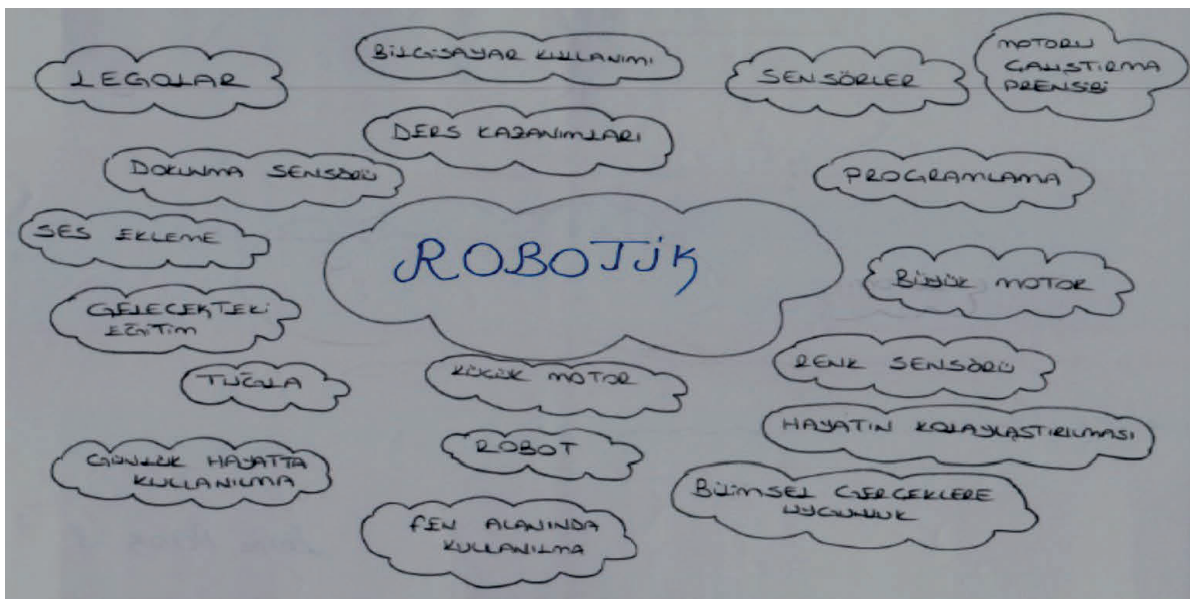 LEGOLAR
BİLGİSAYAR KULLANIMI
SENSÖRLER
MOTORU
ÇALIŞTIRMA
PRENSİBİ
DERS KAZANIMLARI
DOKUNMA SENSÖRÜ
PROGRAMLAMA
SES EKLEME
ROBOTİK
BÜYÜK MOTOR
GELECEKTEKİ
EĞİTİM
TUĞLA
KÜÇÜK MOTOR
RENK SENSÖRÜ
HAYATIN KOLAYLAŞTIRILMASI
ROBOT
GÜNLÜK HAYATTA
KULLANILMA
BİLİMSEL GERÇEKLERE
UYGUNLUK
FEN ALANINDA
KULLANILMA